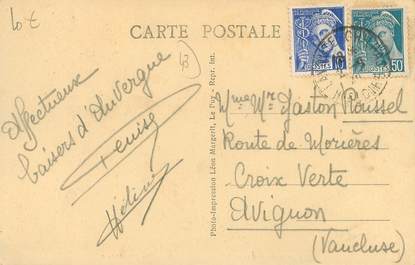 10 €
CARTE POSTALE
Affectueux
baisers d'Auvergne
Denise
Hélène
Photo-Impression Léon Margerit, Le Puy - Repr. int.
10
POSTES
50
Mme Mr Gaston Roussel
Route de Morières
Croix Verte
Avignon
(Vaucluse)